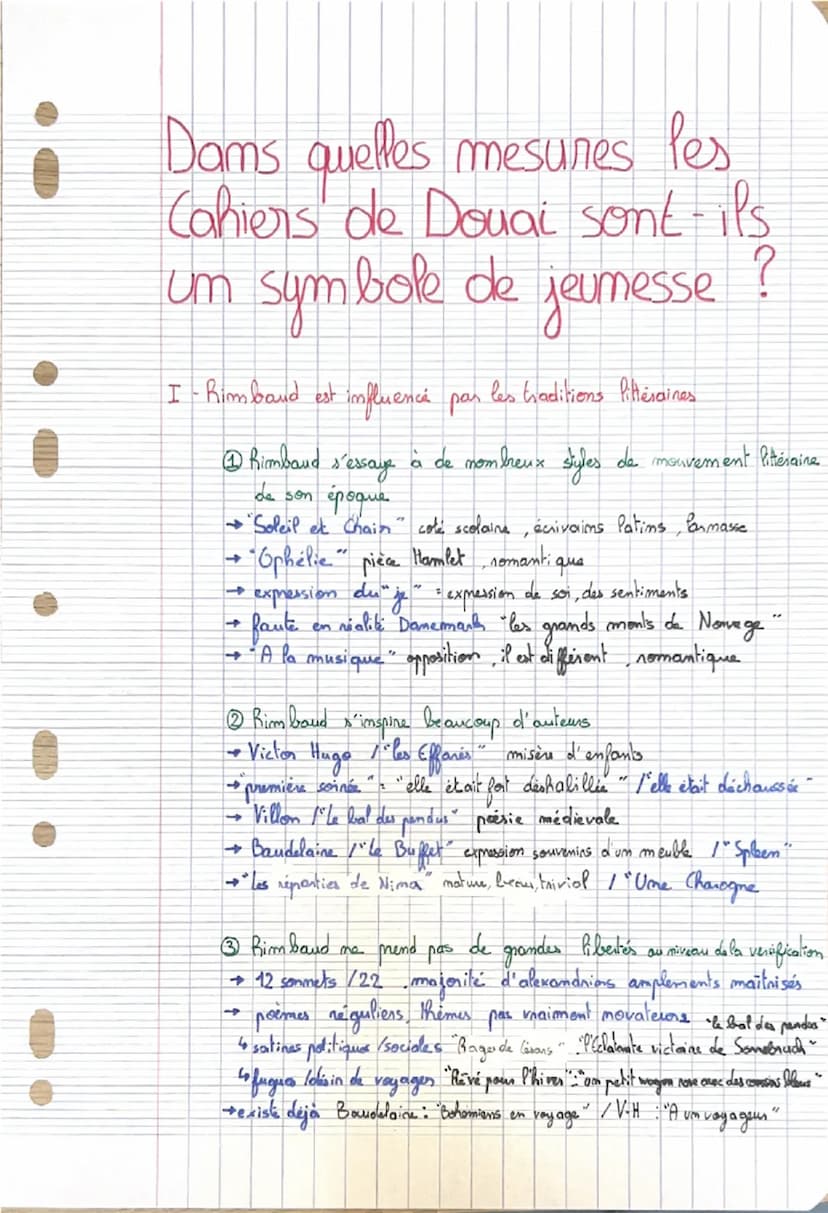 Dans quelles mesures les
Cahiers de Douai sont-ils
um symbole de jeunesse ?
I - Rimbaud est influencé par les traditions littéraires
① Rimbaud s'essaye à de nombreux styles de mouvement littéraire
de son époque
→ "Soleil et Chair" coté scolaire, écrivains latins, Parnasse
→ "Ophélie" pièce Hamlet, romantique
→ expression du "je" = expression de soi, des sentiments
→ faute en réalité Danemark "les grands monts de Norvege"
→ "A la musique" opposition, il est différent, romantique
② Rimbaud s'inspire beaucoup d'auteurs
→ Victor Hugo / "les Effarés" misère d'enfants
→ "première soirée" = "elle était fort déshabillée" / "elle était déchaussée"
→ Villon / "Le bal des pendus" poésie médievale
→ Baudelaire / "Le Buffet" expression souvenirs d'un meuble / "Spleen"
→ "Les réparties de Nina" nature, beau, trivial / "Une Charogne
③ Rimbaud ne prend pas de grandes libertés au niveau de la versification
→ 12 sonnets / 22, majorité d'alexandrins amplements maîtrisés
→ poèmes réguliers, thèmes pas vraiment novateurs "le bal des pendus"
↳ satires politiques / sociales "Rages de Césars" "l'Eclatante victoire de Sarrebruck"
↳ fugues / désir de voyages "Rêvé pour l'hiver" : "un petit wagon rose avec des coussins bleus"
→ existe déjà Baudelaire : "Bohémiens en voyage" / V.H : "A un voyageur"